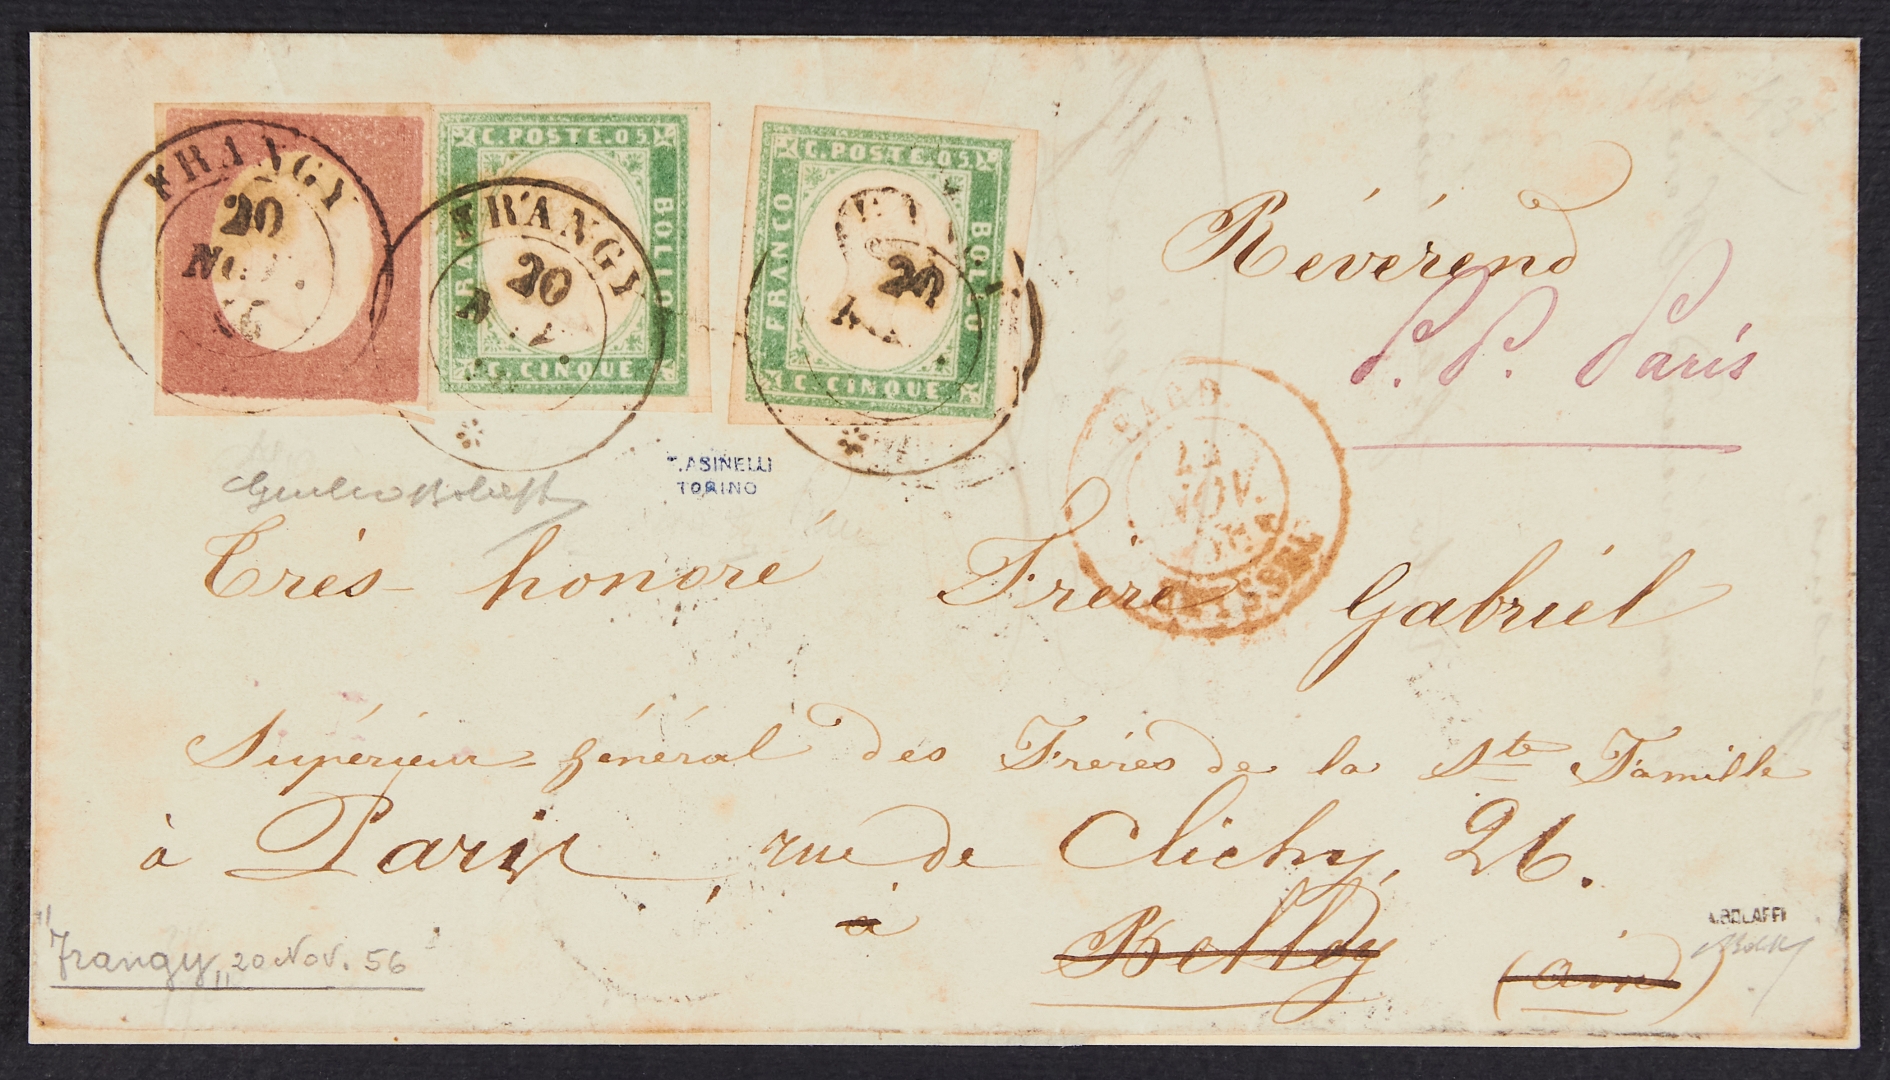 FRANGY
20
C. POSTE. 05
BOLLO
C. CINQUE
FRANGY
20
C. POSTE. 05
FRANCO
BOLLO
C. CINQUE
20
Révérend
P. P. Paris
SARD.
NOV.
T. ASINELLI
TORINO
Très honoré Frère Gabriel
Supérieur général des Frères de la Ste Famille
à Paris, rue de Clichy, 26.
à
Belley (ain)
A. BOLAFFI
"Frangy" 20 Nov. 56